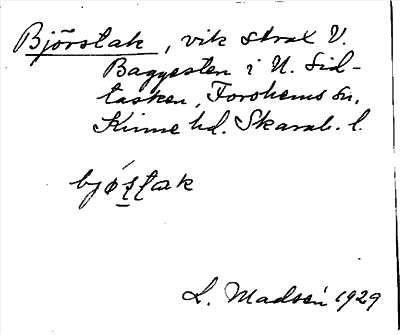 Björstak, vik strax V.
Baggesten i N. Sid-
tasken, Forshems sn,
Kinne hd. Skarab. l.
bjǿs̱ṯak
L. Madsén 1929